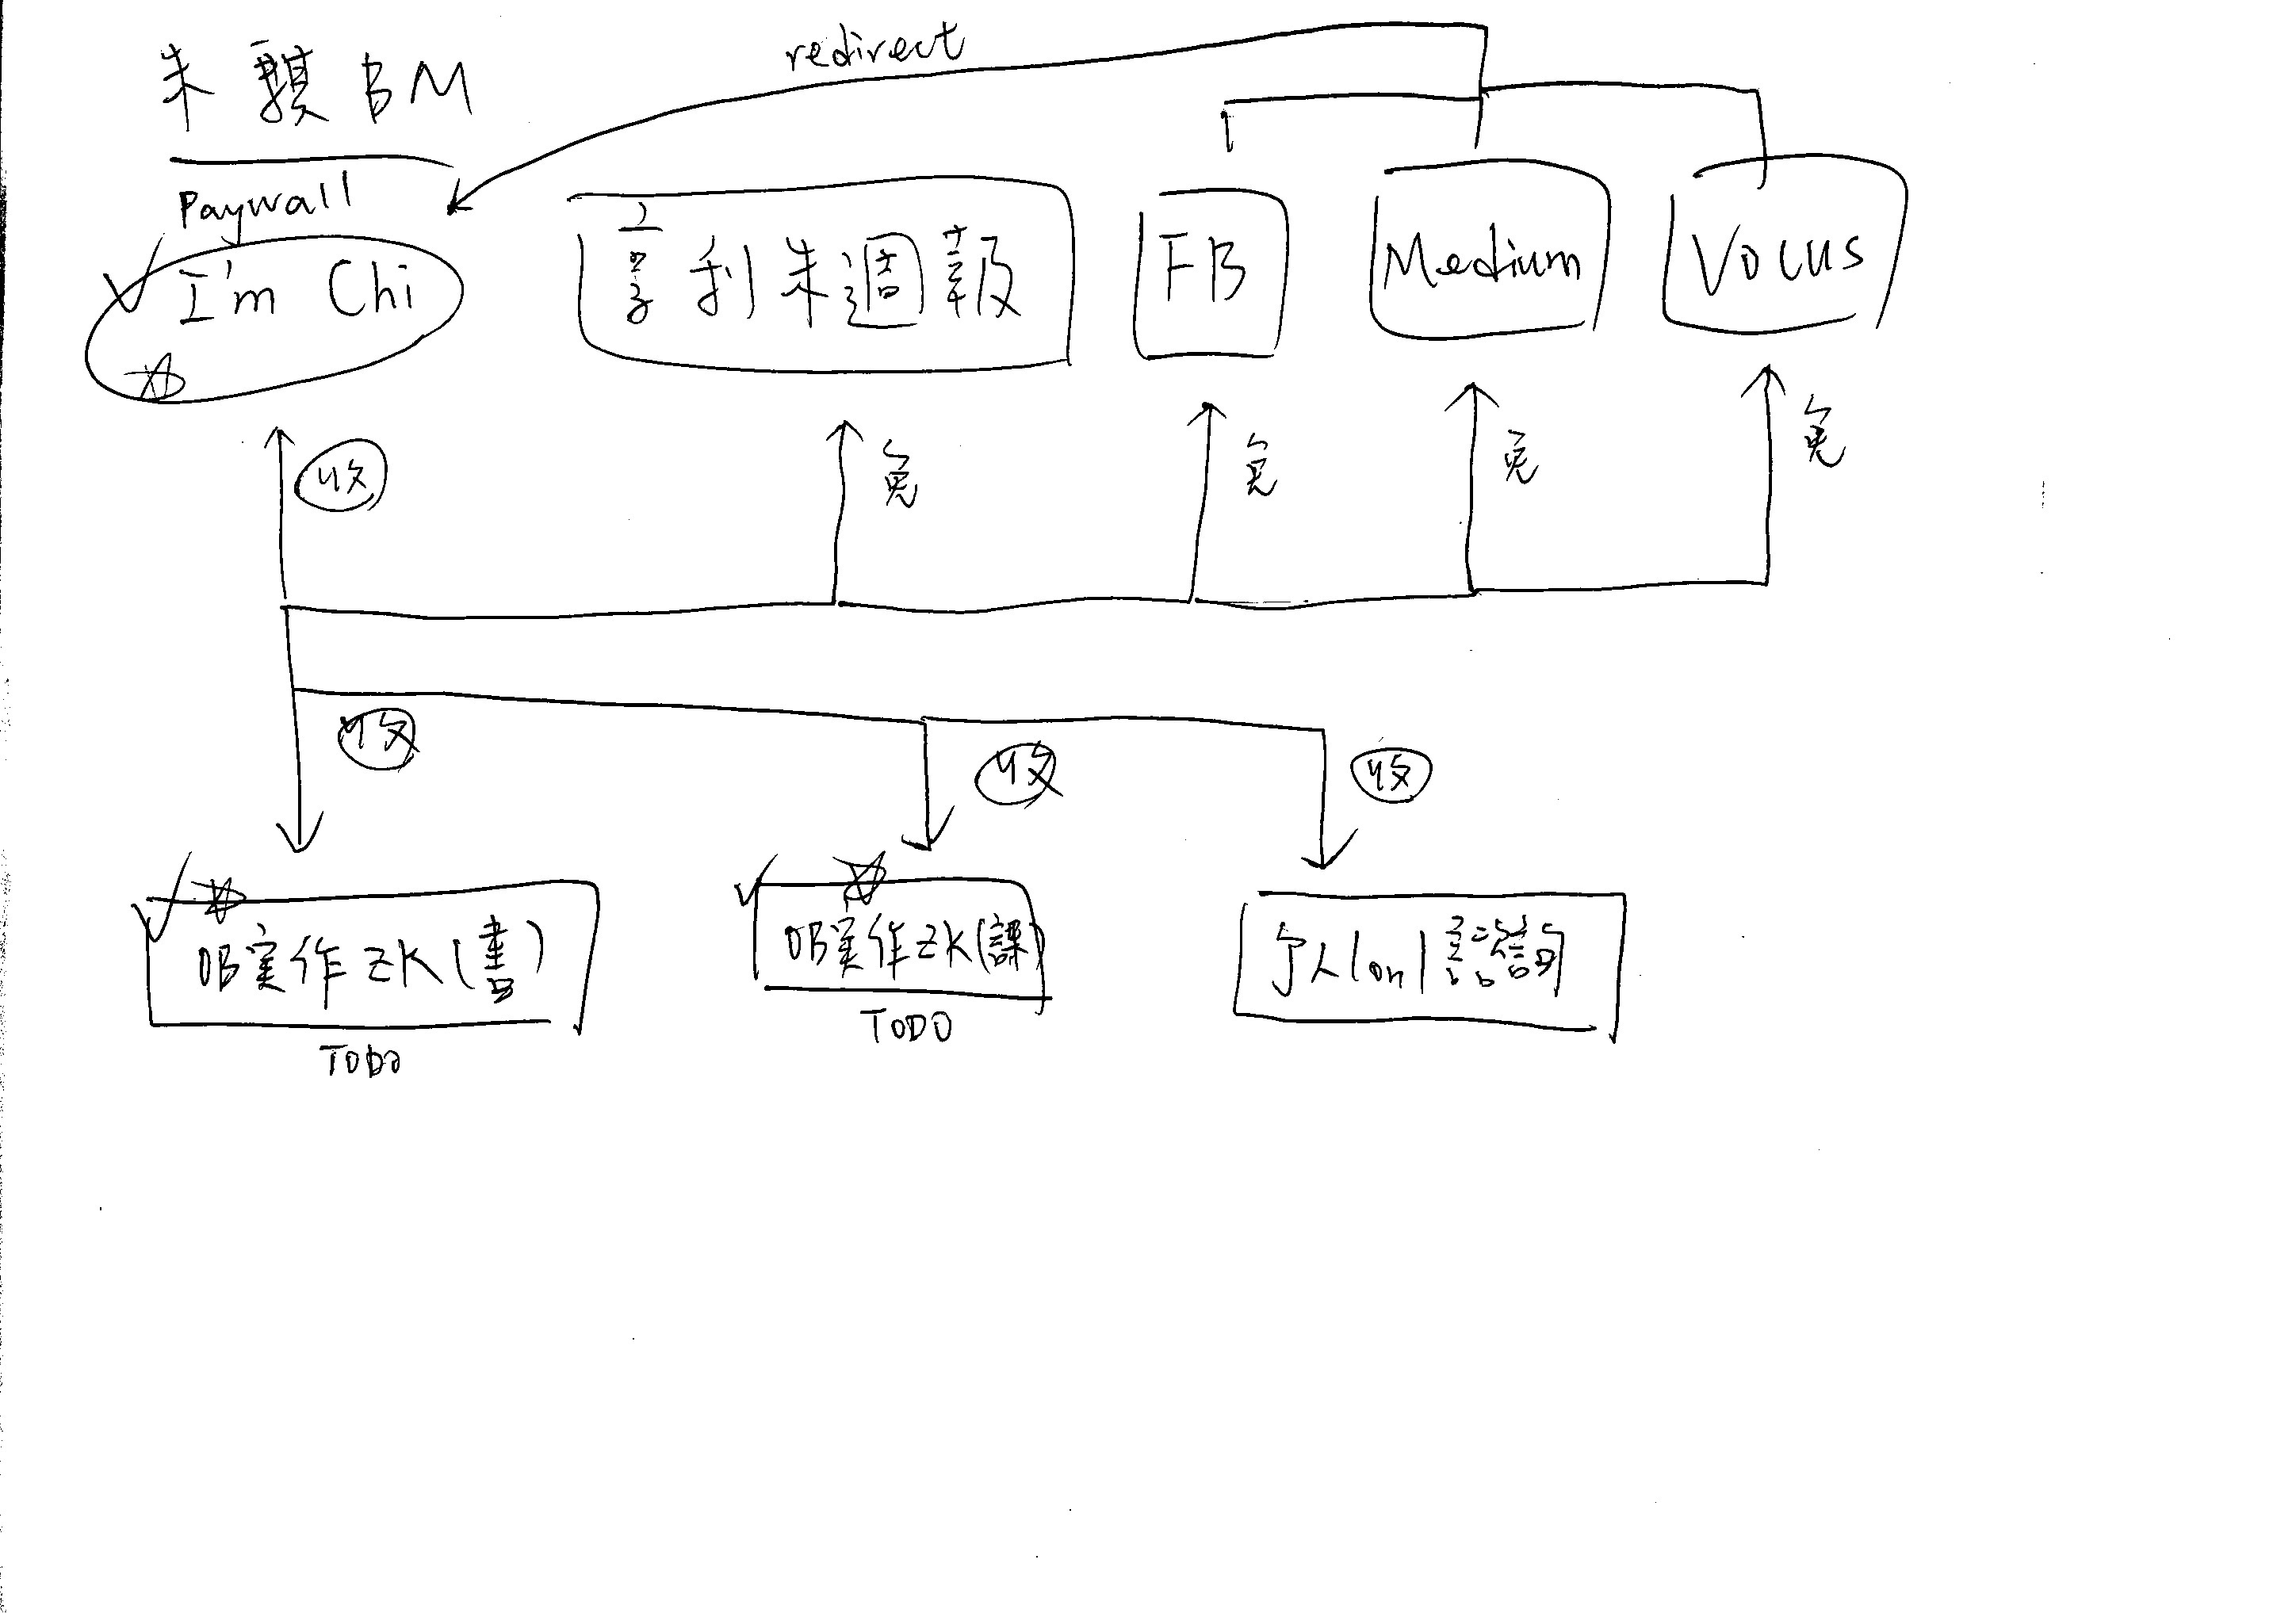 朱騏BM
redirect
Paywall
I'm Chi
亨利朱週報
FB
Medium
Vocus
收
免
免
免
免
收
收
收
OB實作ZK(書)
TODO
OB實作ZK(課)
TODO
1on1諮詢